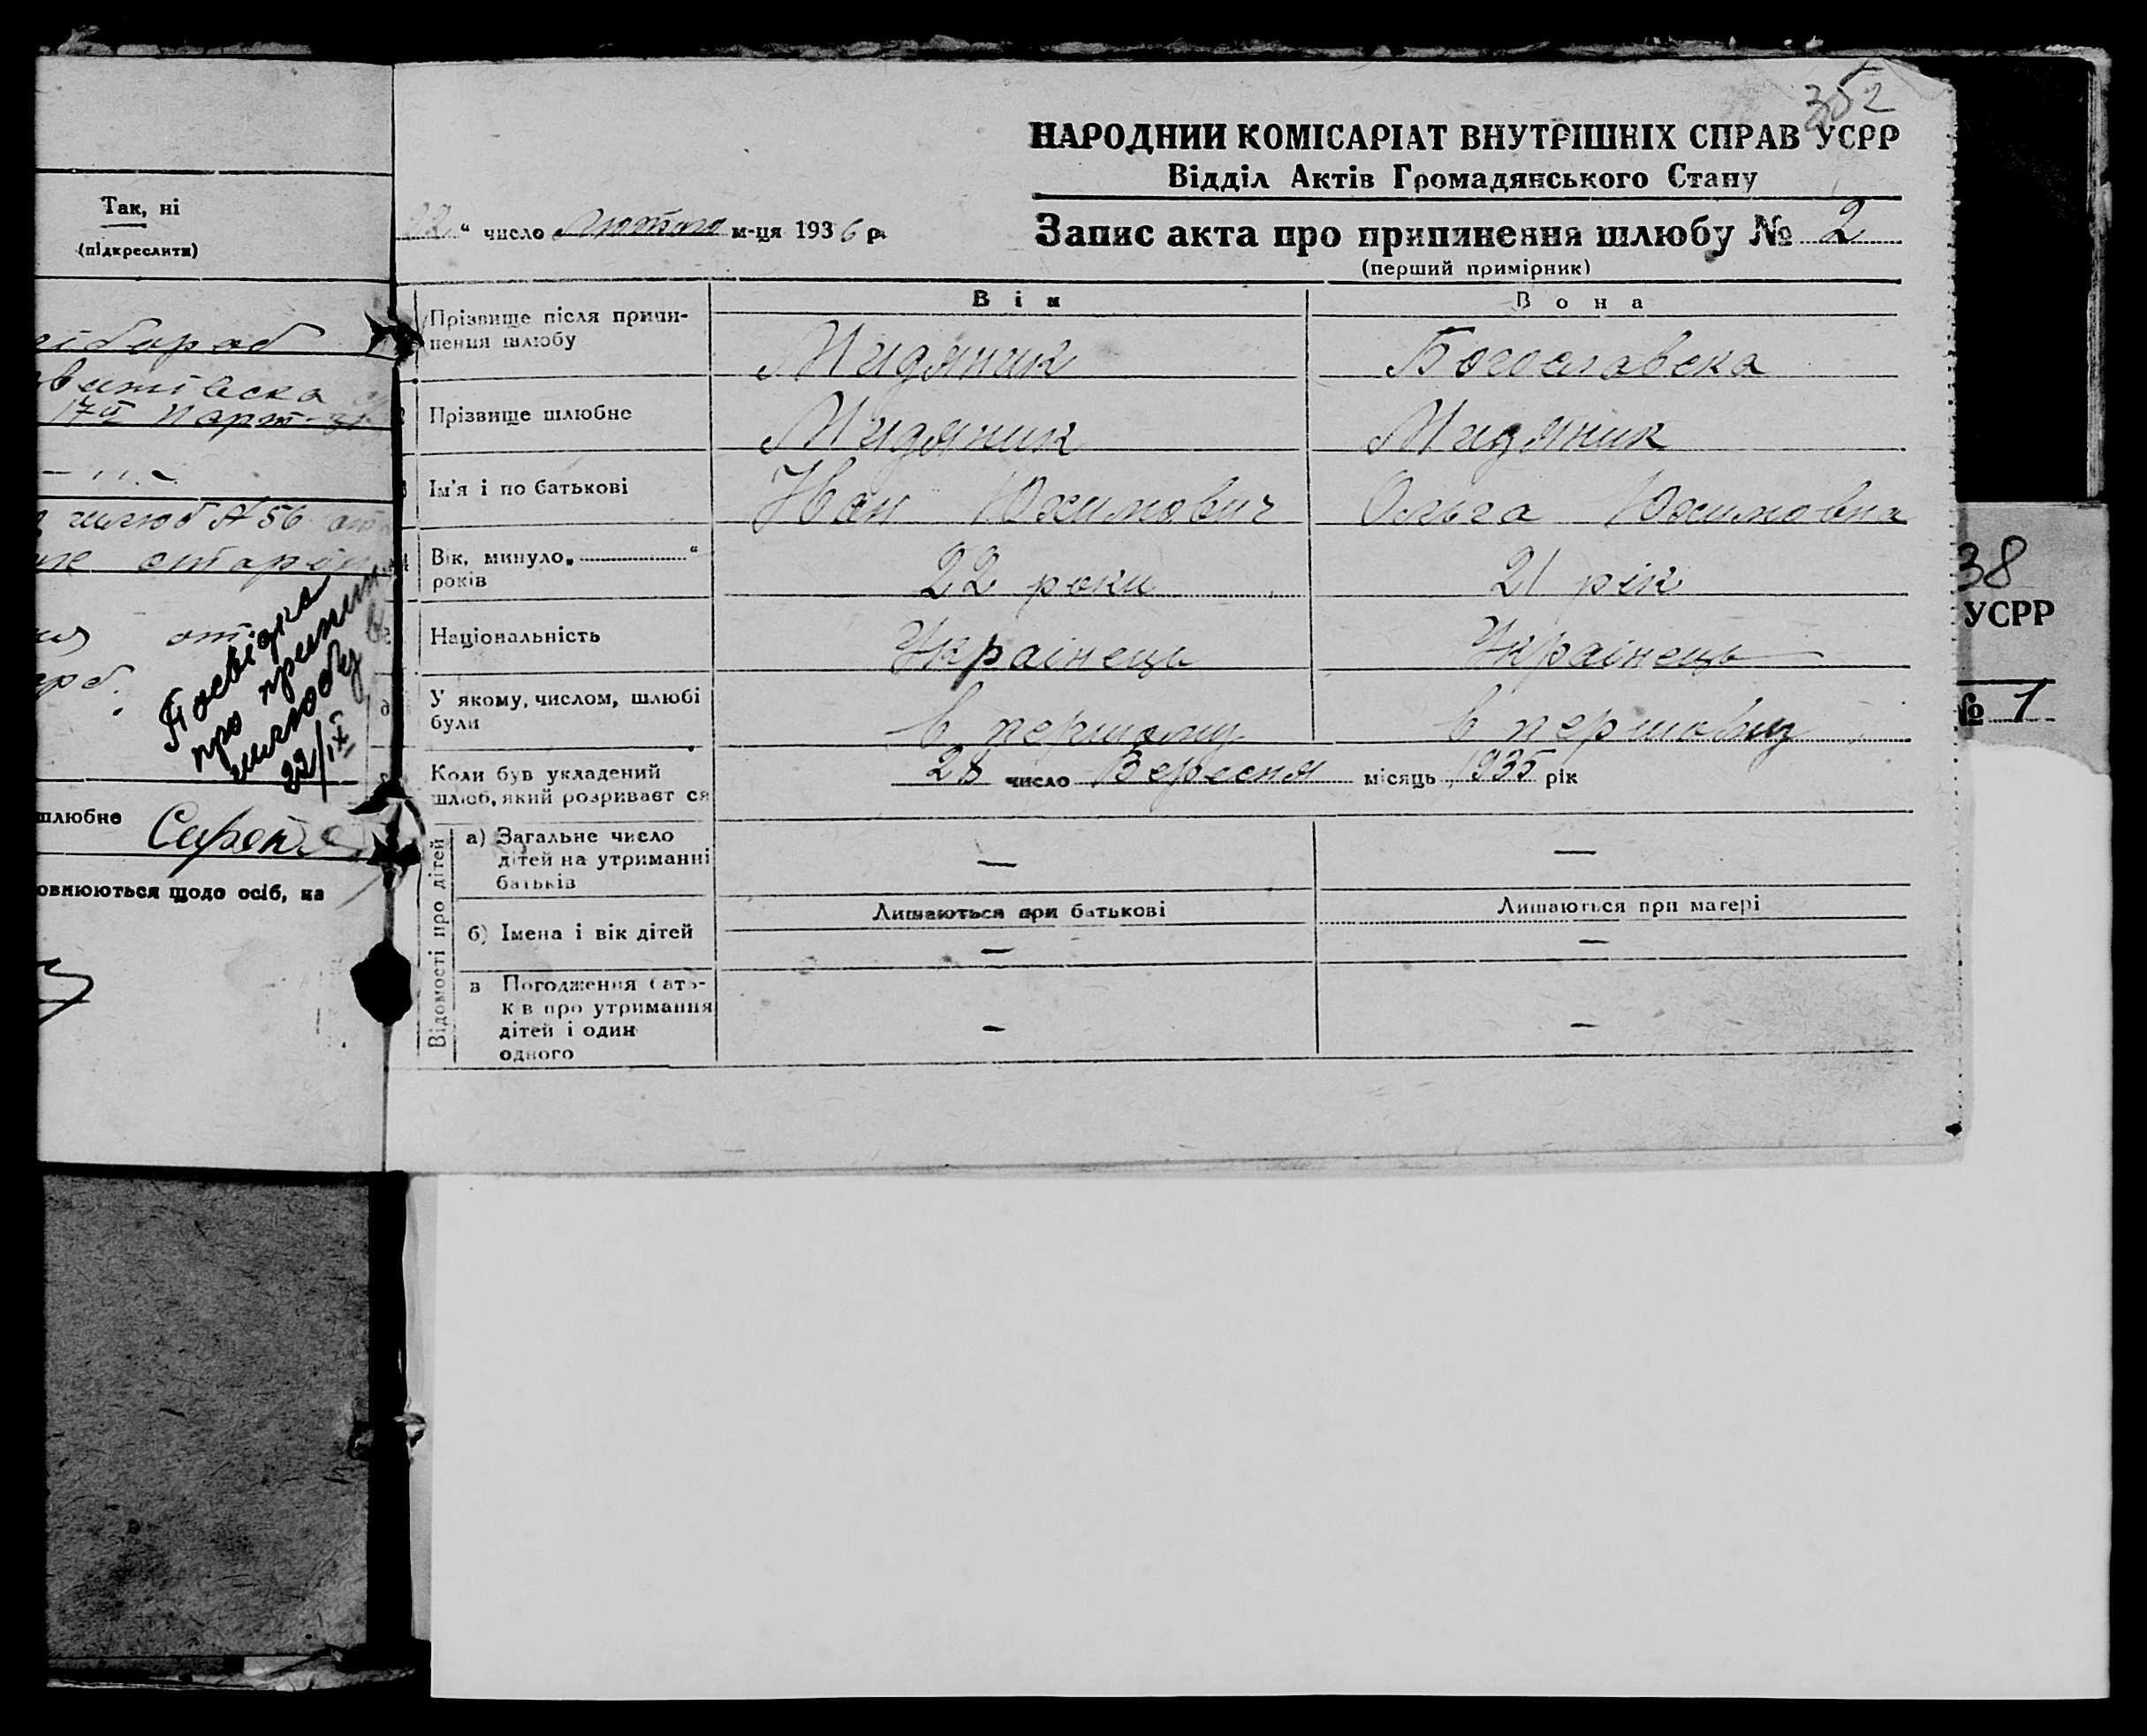 Так, ні
(підкреслити)
17й Парт
шлюб № 56
Посвідка
про припин
шлюбу
22/IX
шлюбне
овнюються щодо осіб, на
352
НАРОДНИЙ КОМІСАРІАТ ВНУТРІШНІХ СПРАВ УСРР
Відділ Актів Громадянського Стану
22 " число Лютого м-ця 1936 р.
Запис акта про припинення шлюбу № 2
(перший примірник)
Він Вона
Прізвище після припинення шлюбу Мидяник Богославска
Прізвище шлюбне Мидяник Мидяник
Ім'я і по батькові Іван Юхимович Ольга Юхимовна
Вік, минуло „ " років 22 роки 21 рік
Національність Українець Українець
У якому, числом, шлюбі були в першому в першому
Коли був укладений шлюб, який розривається 28 число Вересня місяць 1935 рік
Відомості про дітей
а) Загальне число дітей на утриманні батьків — —
Лишаються при батькові Лишаються при матері
б) Імена і вік дітей — —
в Погодження батьків про утримання дітей і один одного — —
38
УСРР
№ 1